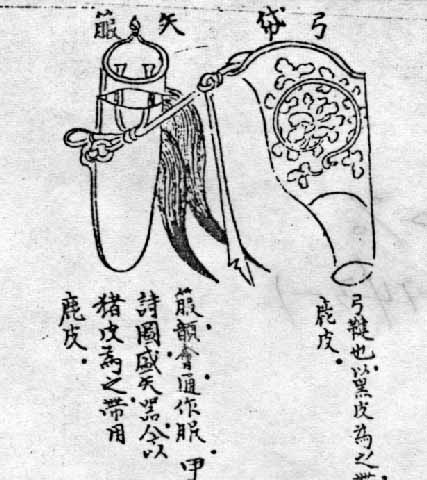 弓帒
弓鞬也以黑皮為之帶
鹿皮
矢箙
箙韻會通作服 甲
詩圖盛矢器今以
猪皮為之帶用
鹿皮